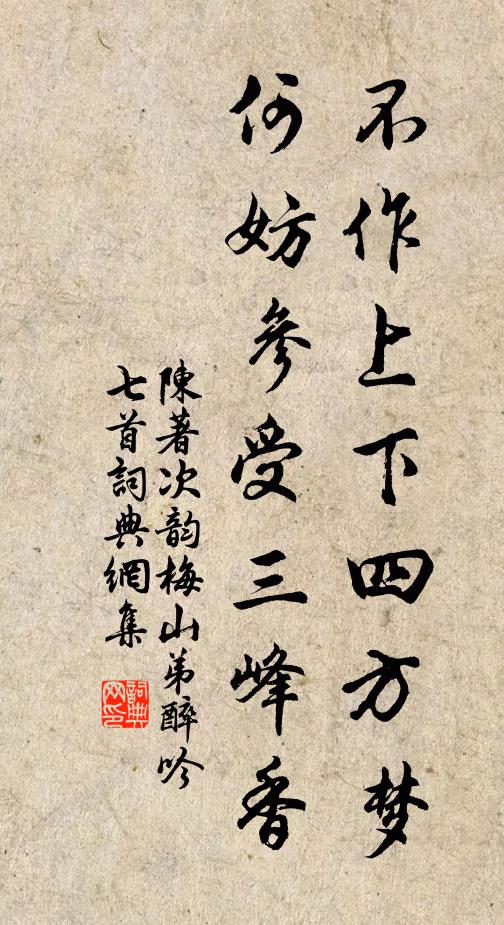 不作上下四方梦
何妨參受三峰香
陳著次韵梅山弟醉吟
七首詞典網集
詞典
网印